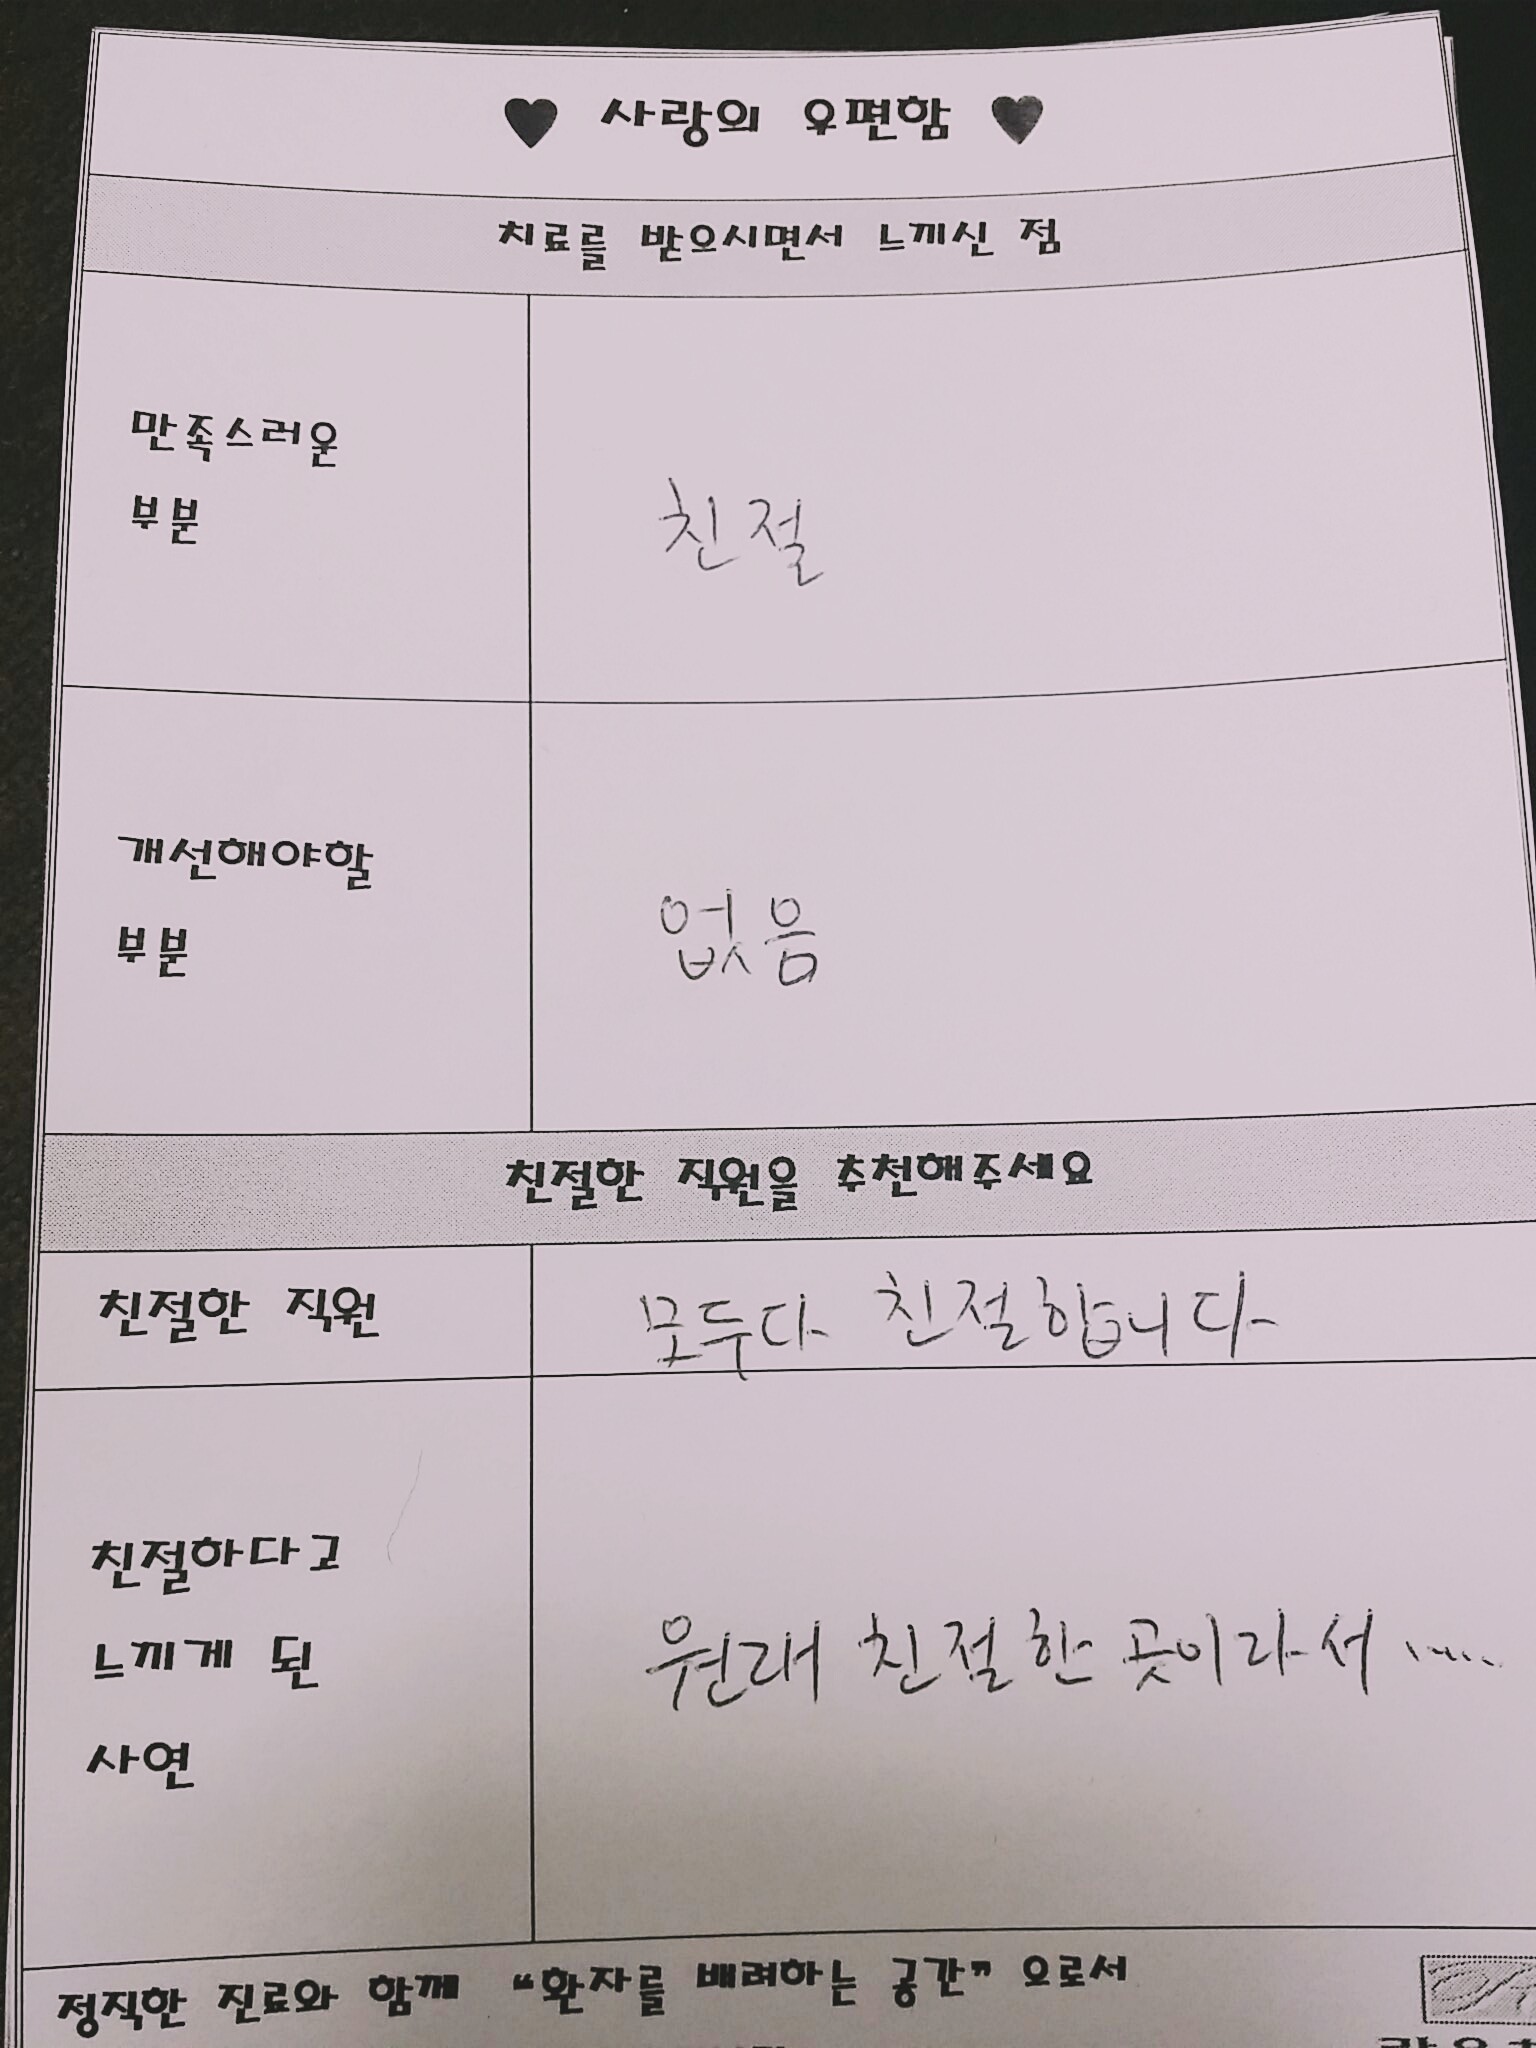 ♥ 사랑의 우편함 ♥
치료를 받으시면서 느끼신 점
만족스러운
부분
친절
개선해야할
부분
없음
친절한 직원을 추천해주세요
친절한 직원
모두다 친절합니다
친절하다고
느끼게 된
사연
원래 친절한 곳이라서 .....
정직한 진료와 함께 “환자를 배려하는 공간” 으로서